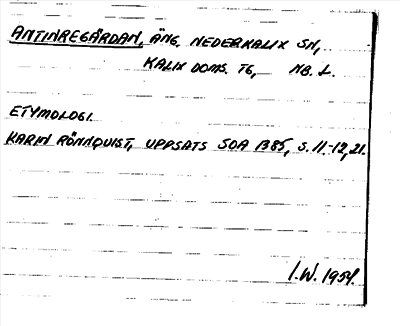 ANTINREGÅRDAN, ÄNG, NEDERKALIX SN,
KALIX DOMS. TG, NB. L.
ETYMOLOGI.
KARIN RÖNNQUIST, UPPSATS SOA 1385, S. 11-12, 21.
I.W. 1954.